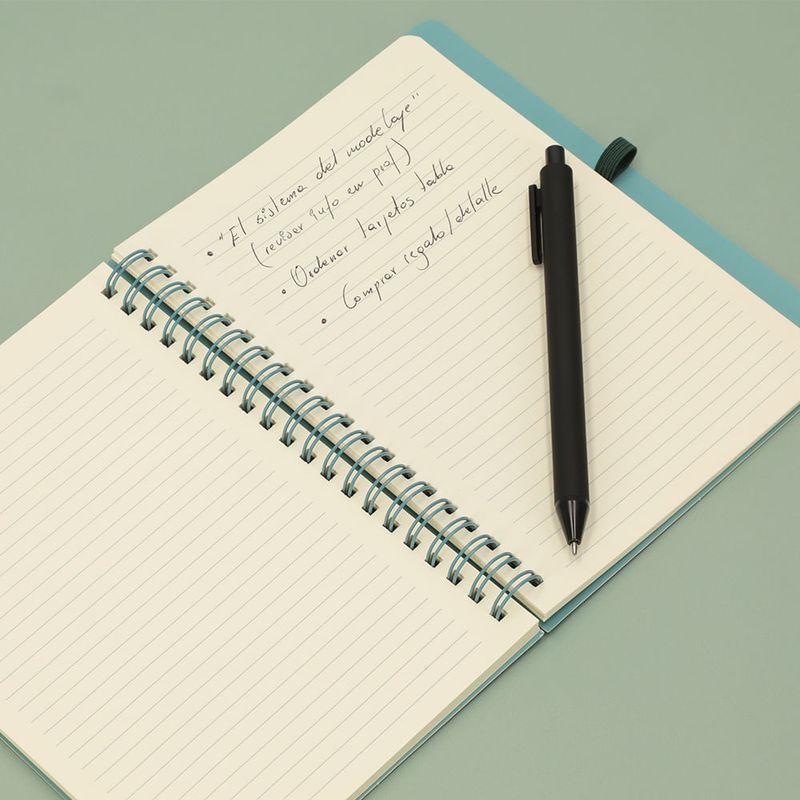 • "El sistema del modelaje"
(revisar info en prof)
• Ordenar tarjetas tabla
• Comprar regalo/detalle